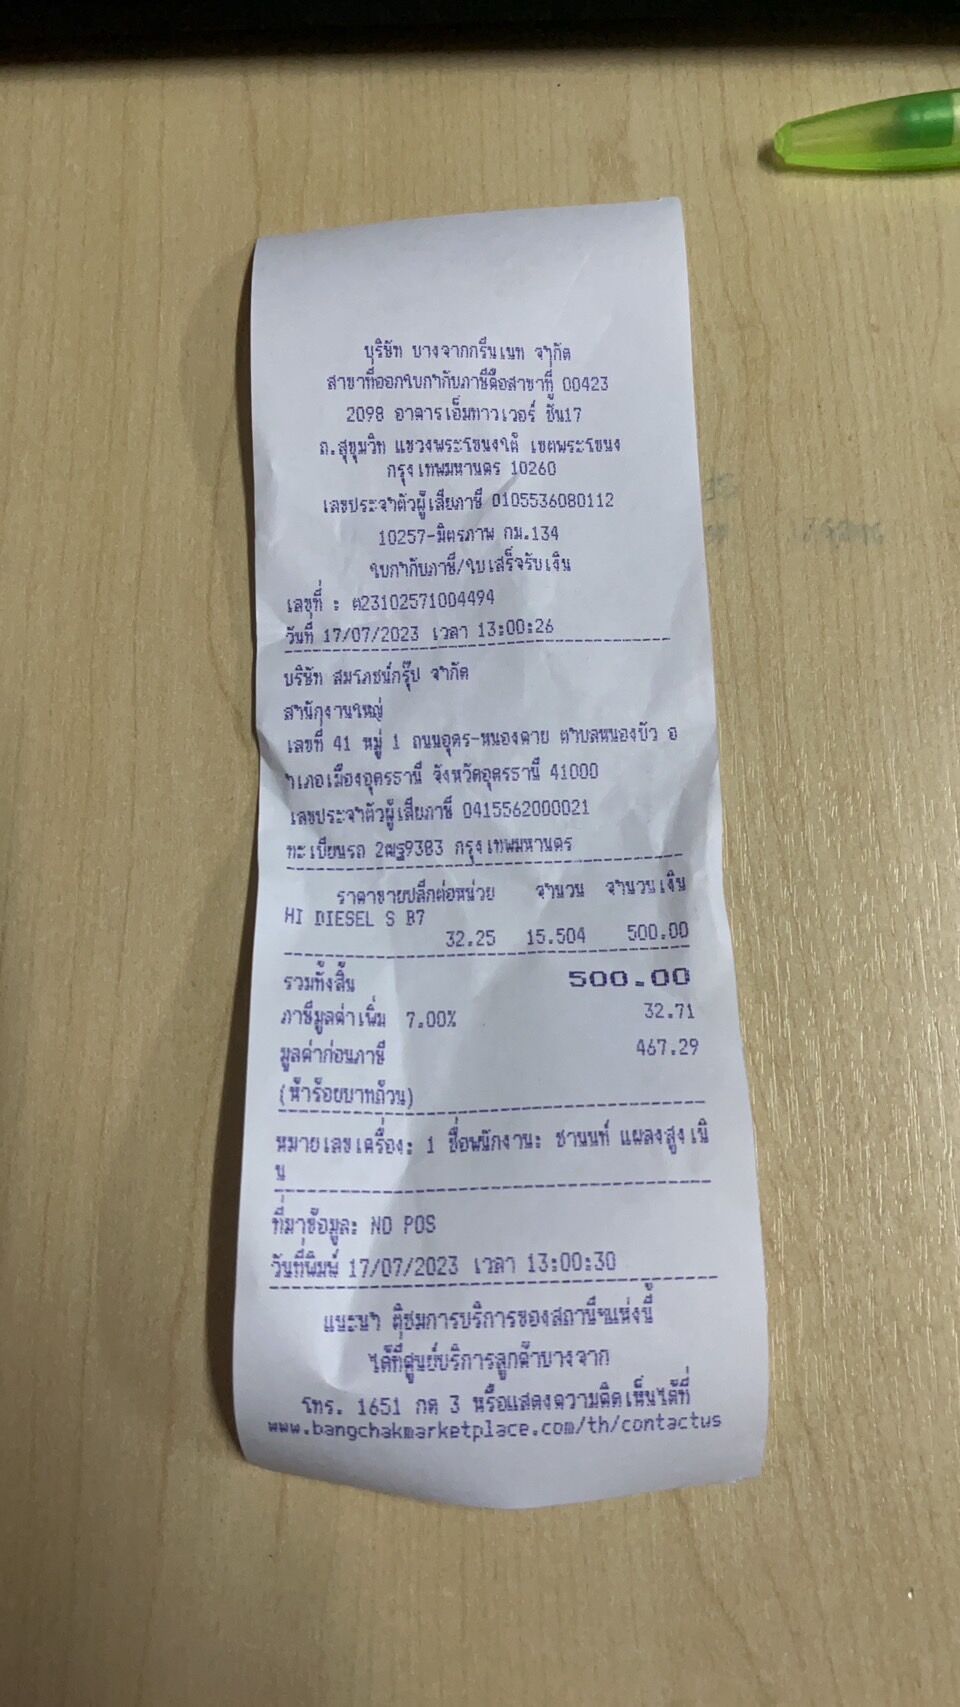 บริษัท บางจากกรีนเนท จำกัด
สาขาที่ออกใบกำกับภาษีคือสาขาที่ 00423
2098 อาคารเอ็มทาวเวอร์ ชั้น17
ถ.สุขุมวิท แขวงพระโขนงใต้ เขตพระโขนง
กรุงเทพมหานคร 10260
เลขประจำตัวผู้เสียภาษี 0105536080112
10257-มิตรภาพ กม.134
ใบกำกับภาษี/ใบเสร็จรับเงิน
เลขที่ : ต23102571004494
วันที่ 17/07/2023 เวลา 13:00:26
บริษัท สมโภชน์กรุ๊ป จำกัด
สำนักงานใหญ่
เลขที่ 41 หมู่ 1 ถนนอุดร-หนองคาย ตำบลหนองบัว อ
ำเภอเมืองอุดรธานี จังหวัดอุดรธานี 41000
เลขประจำตัวผู้เสียภาษี 0415562000021
ทะเบียนรถ 2ฒฐ9383 กรุงเทพมหานคร
ราคาขายปลีกต่อหน่วย จำนวน จำนวนเงิน
HI DIESEL S B7
32.25 15.504 500.00
รวมทั้งสิ้น 500.00
ภาษีมูลค่าเพิ่ม 7.00% 32.71
มูลค่าก่อนภาษี 467.29
(ห้าร้อยบาทถ้วน)
หมายเลขเครื่อง: 1 ชื่อพนักงาน: ชานนท์ แผลงสูงเนิ
น
ที่มาข้อมูล: NO POS
วันที่พิมพ์ 17/07/2023 เวลา 13:00:30
แนะนำ ติชมการบริการของสถานีฯแห่งนี้
ได้ที่ศูนย์บริการลูกค้าบางจาก
โทร. 1651 กด 3 หรือแสดงความคิดเห็นได้ที่
www.bangchakmarketplace.com/th/contactus